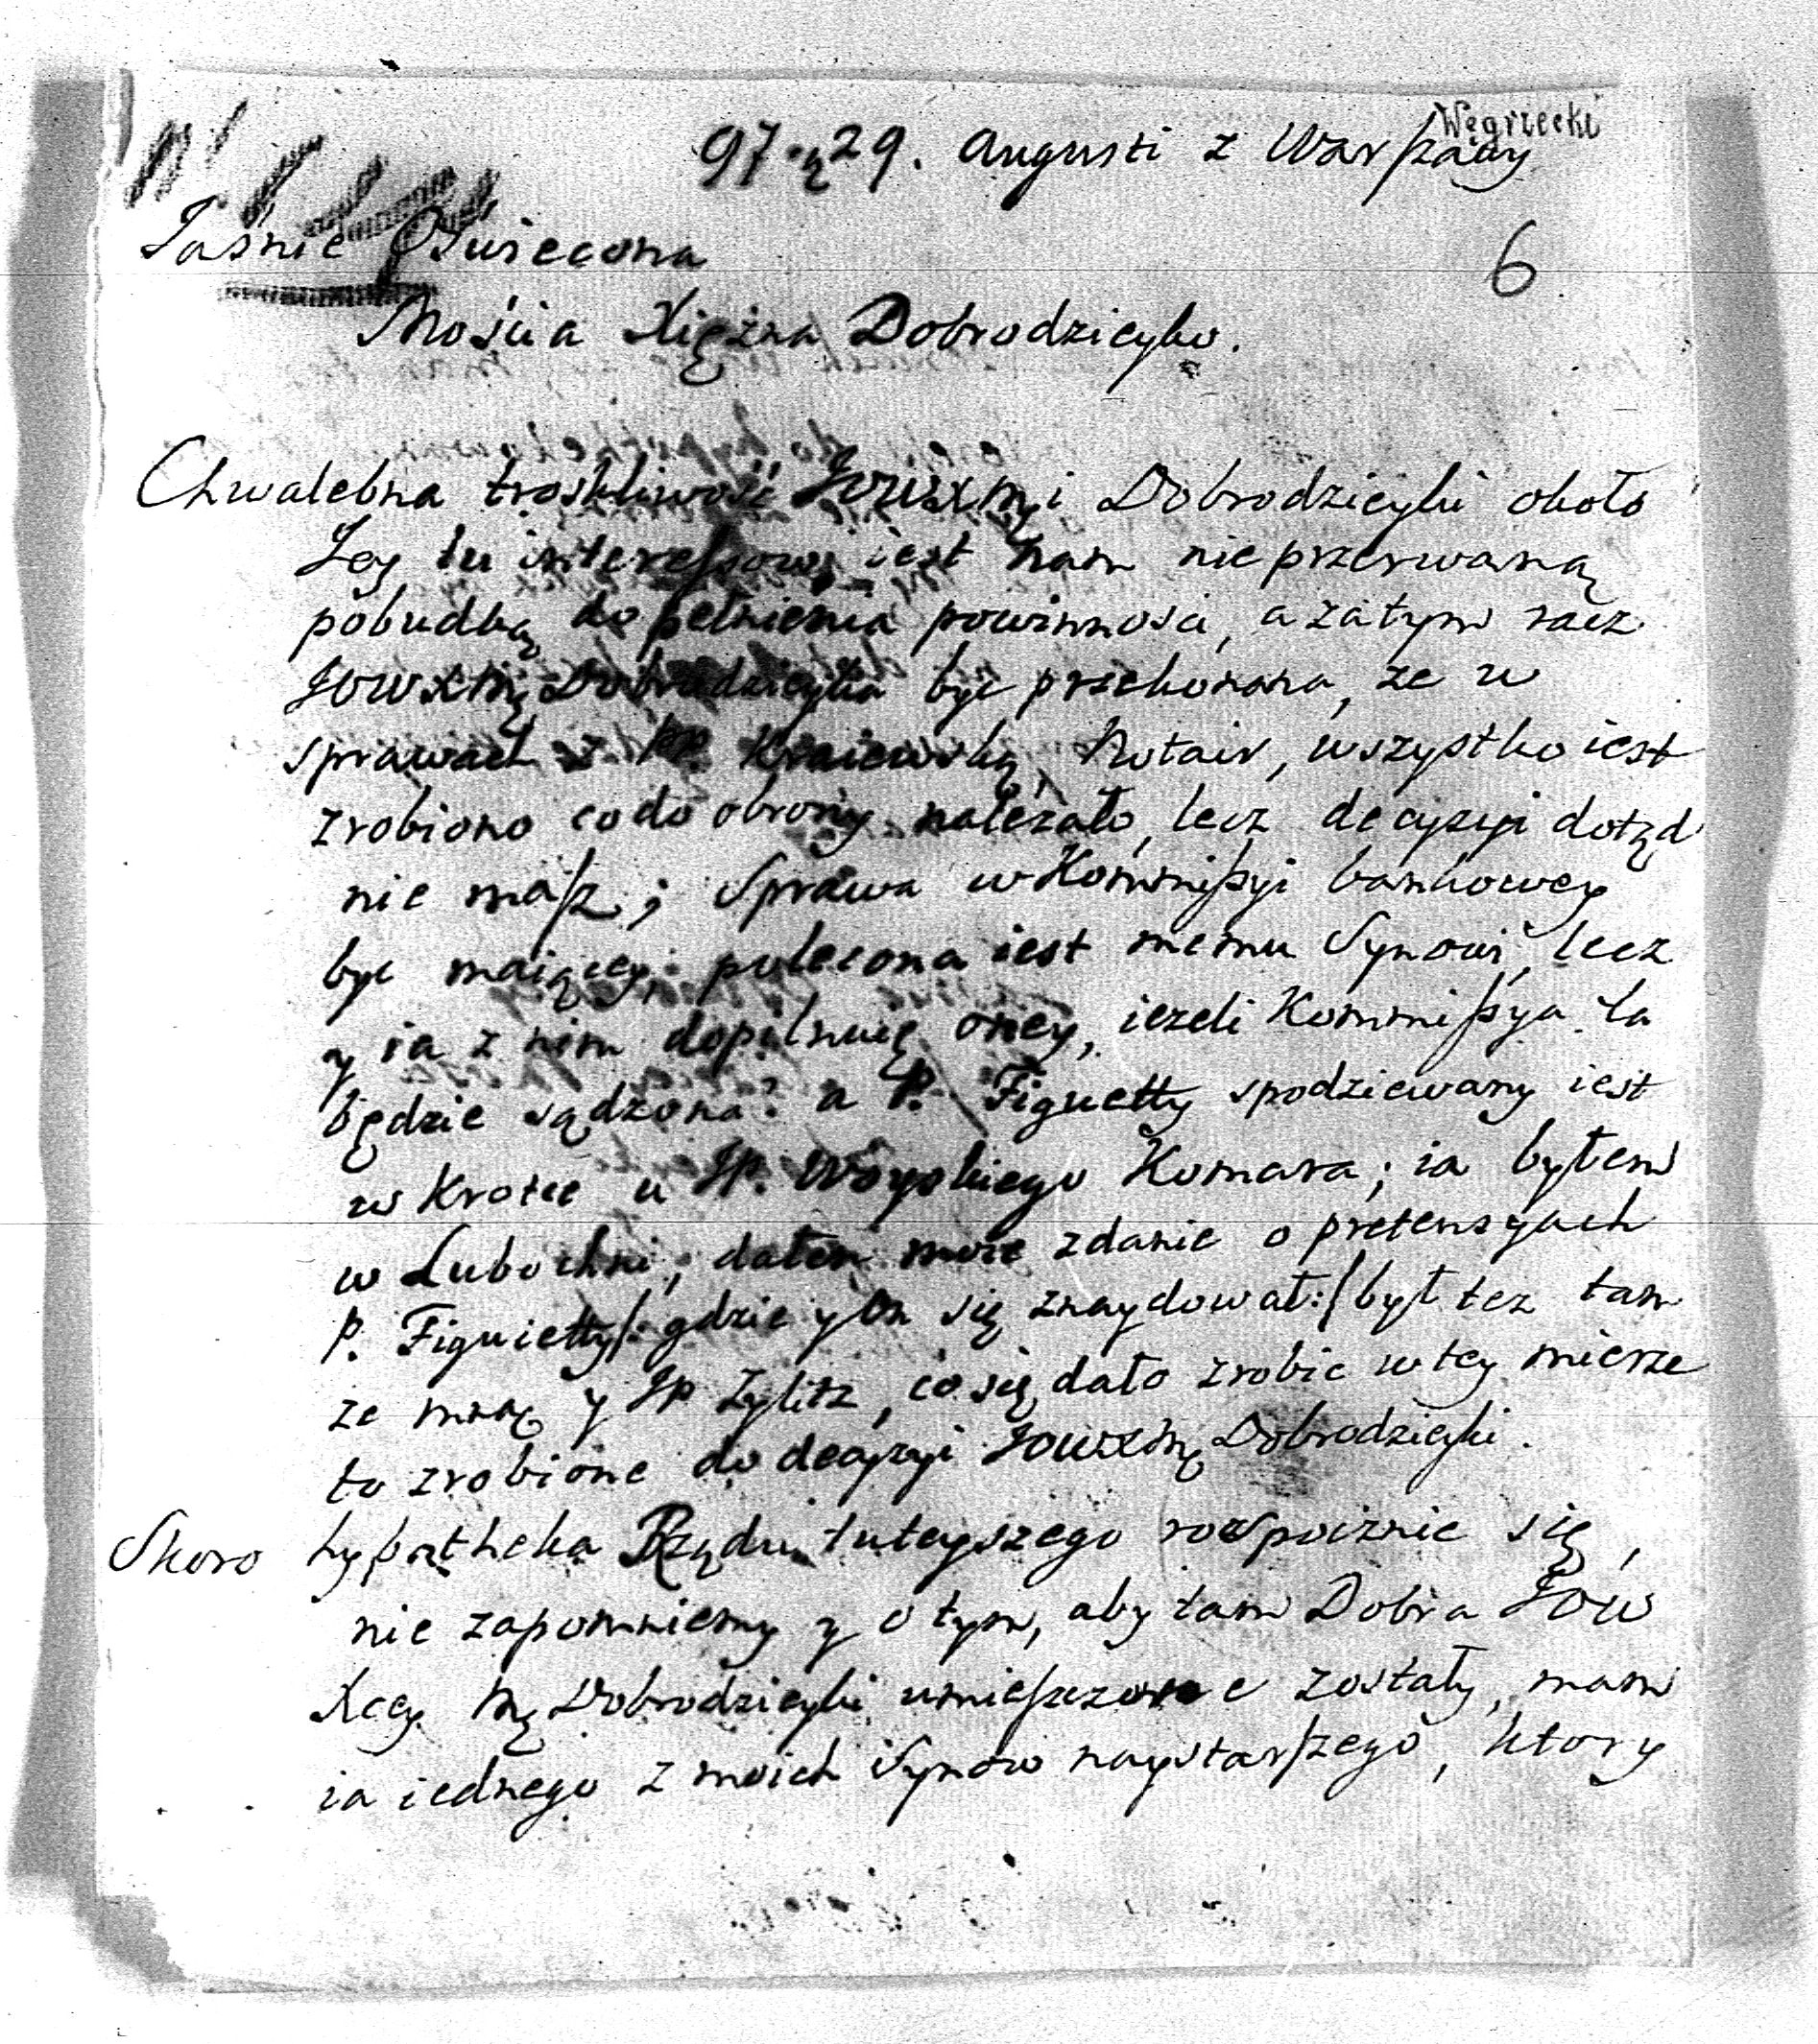 Węgrzecki
97. 29. Augusti z Warszawy
6
Jaśnie Oświecona
Mościa Xiężna Dobrodzieyko.
Chwalebna troskliwość JOWXMci Dobrodzieyki około
Jey tu interessow, iest nam nieprzerwaną
pobudką do pełnienia powinności, a zatym racz
JOWXMć Dobrodzieyka być przekonana, ze w
sprawach z PP. Kraiewską, Notair, wszystko iest
zrobiono co do obrony należało, lecz decyzyi dotąd
nie masz; Sprawa w Kommissyi bankowey
być maiącey, polecona iest memu Synowi, lecz
y ia z nim dopilnuię oney, ieżeli Kommissya ta
będzie sądzona? a P. Figuetty spodziewany iest
w Krotce u JP. Woyskiego Komara; ia byłem
w Lubochni, dałem moie zdanie o pretensyach
P. Figuietty/: gdzie y On się znaydował:/ był tez tam
ze mną y JP Zylitz, co się dało zrobić w tey mierze
to zrobione do decyzyi JOWXMć Dobrodzieyki.
Skoro hypotheka Rządu tuteyszego rozpocznie się,
nie zapomniemy y o tym, aby tam Dobra JOW
Xcey Mć Dobrodzieyki umieszczone zostały, mam
ia iednego z moich Synow naystarszego, ktory